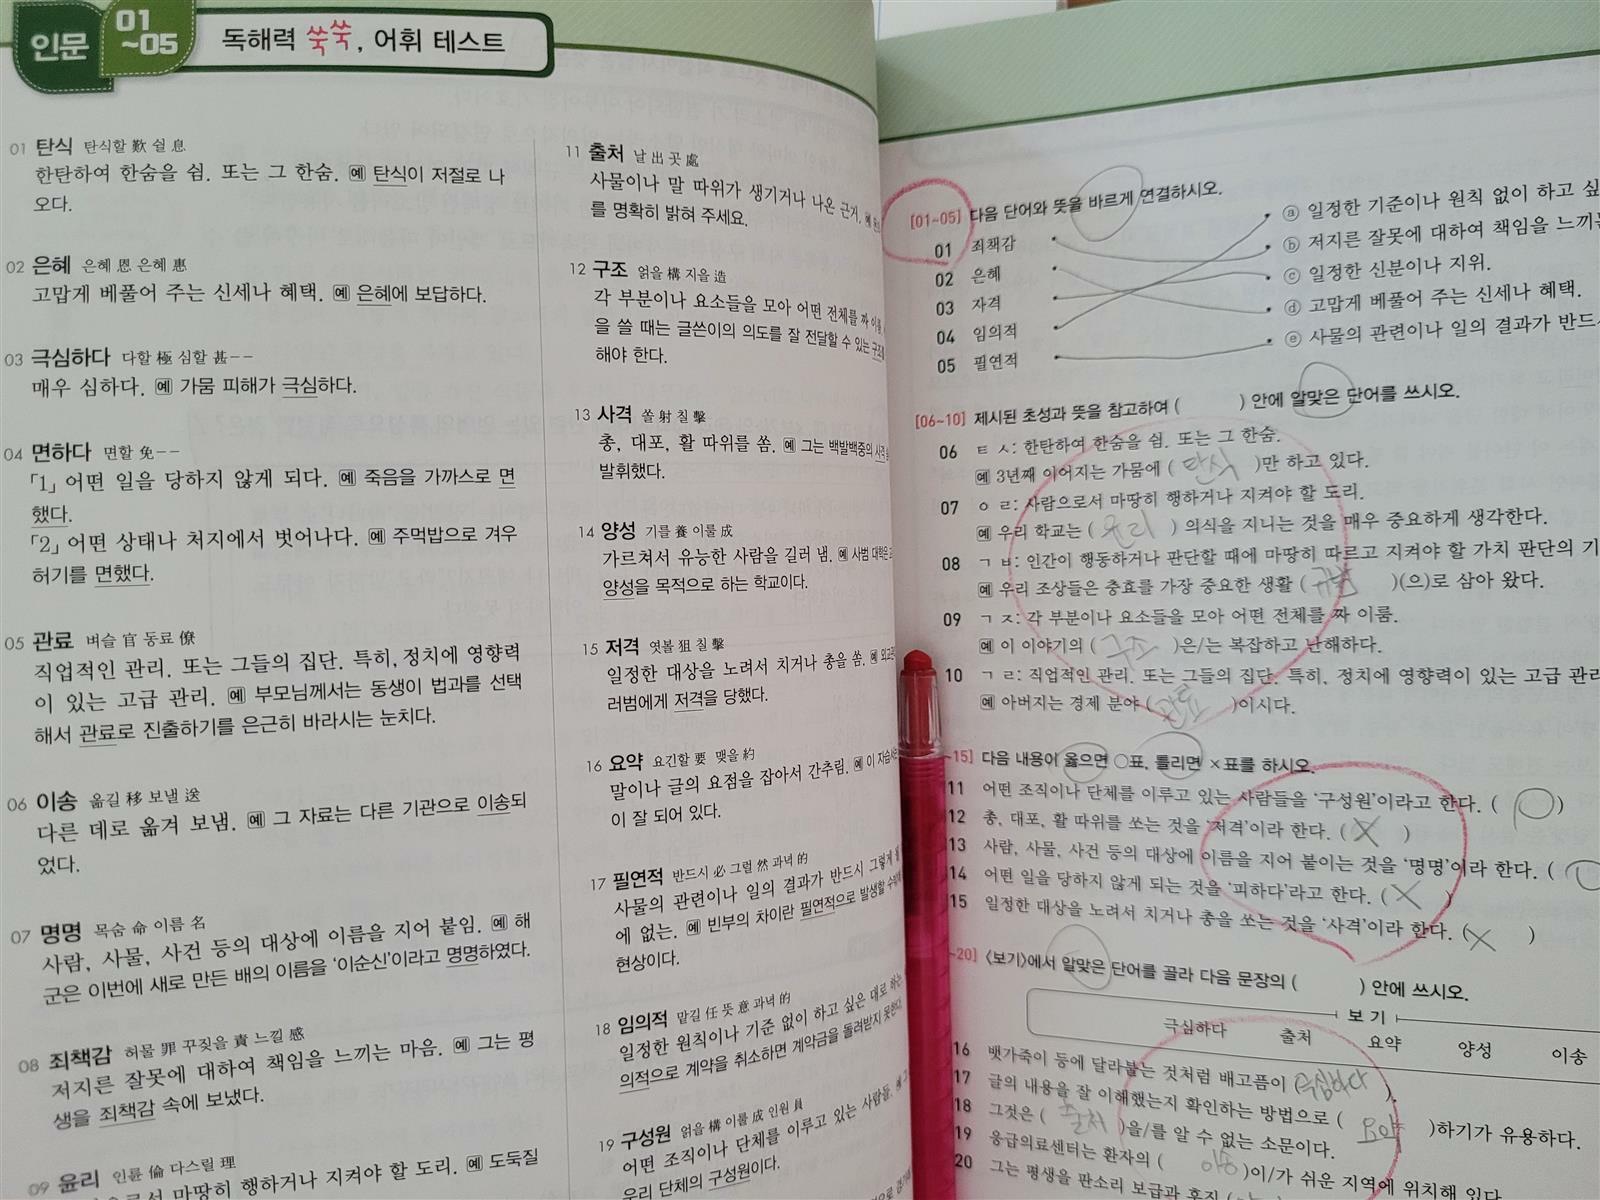 인문 01~05
독해력 쑥쑥, 어휘 테스트
01 탄식 탄식할 歎 쉴 息
한탄하여 한숨을 쉼. 또는 그 한숨. 예 탄식이 저절로 나
오다.
02 은혜 은혜 恩 은혜 惠
고맙게 베풀어 주는 신세나 혜택. 예 은혜에 보답하다.
03 극심하다 다할 極 심할 甚--
매우 심하다. 예 가뭄 피해가 극심하다.
04 면하다 면할 免--
「1」 어떤 일을 당하지 않게 되다. 예 죽음을 가까스로 면
했다.
「2」 어떤 상태나 처지에서 벗어나다. 예 주먹밥으로 겨우
허기를 면했다.
05 관료 벼슬 官 동료 僚
직업적인 관리. 또는 그들의 집단. 특히, 정치에 영향력
이 있는 고급 관리. 예 부모님께서는 동생이 법과를 선택
해서 관료로 진출하기를 은근히 바라시는 눈치다.
06 이송 옮길 移 보낼 送
다른 데로 옮겨 보냄. 예 그 자료는 다른 기관으로 이송되
었다.
07 명명 목숨 命 이름 名
사람, 사물, 사건 등의 대상에 이름을 지어 붙임. 예 해
군은 이번에 새로 만든 배의 이름을 '이순신'이라고 명명하였다.
08 죄책감 허물 罪 꾸짖을 責 느낄 感
저지른 잘못에 대하여 책임을 느끼는 마음. 예 그는 평
생을 죄책감 속에 보냈다.
09 윤리 인륜 倫 다스릴 理
마땅히 행하거나 지켜야 할 도리. 예 도둑질
11 출처 날 出 곳 處
사물이나 말 따위가 생기거나 나온 근거. 예
를 명확히 밝혀 주세요.
12 구조 얽을 構 지을 造
각 부분이나 요소들을 모아 어떤 전체를 짜 이룸.
을 쓸 때는 글쓴이의 의도를 잘 전달할 수 있는 구조
해야 한다.
13 사격 쏠 射 칠 擊
총, 대포, 활 따위를 쏨. 예 그는 백발백중의 사격
발휘했다.
14 양성 기를 養 이룰 成
가르쳐서 유능한 사람을 길러 냄. 예 사범 대학은
양성을 목적으로 하는 학교이다.
15 저격 엿볼 狙 칠 擊
일정한 대상을 노려서 치거나 총을 쏨. 예
러범에게 저격을 당했다.
16 요약 요긴할 要 맺을 約
말이나 글의 요점을 잡아서 간추림. 예 이 자습서는
이 잘 되어 있다.
17 필연적 반드시 必 그럴 然 과녁 的
사물의 관련이나 일의 결과가 반드시 그렇게 될
에 없는. 예 빈부의 차이란 필연적으로 발생할 수밖에
현상이다.
18 임의적 맡길 任 뜻 意 과녁 的
일정한 원칙이나 기준 없이 하고 싶은 대로 하는
의적으로 계약을 취소하면 계약금을 돌려받지 못한다.
19 구성원 얽을 構 이룰 成 인원 員
어떤 조직이나 단체를 이루고 있는 사람들. 예
우리 단체의 구성원이다.
[01~05] 다음 단어와 뜻을 바르게 연결하시오.
01 죄책감
02 은혜
03 자격
04 임의적
05 필연적
ⓐ 일정한 기준이나 원칙 없이 하고 싶
ⓑ 저지른 잘못에 대하여 책임을 느끼는
ⓒ 일정한 신분이나 지위.
ⓓ 고맙게 베풀어 주는 신세나 혜택.
ⓔ 사물의 관련이나 일의 결과가 반드시
[06~10] 제시된 초성과 뜻을 참고하여 ( ) 안에 알맞은 단어를 쓰시오.
06 ㅌ ㅅ: 한탄하여 한숨을 쉼. 또는 그 한숨.
예 3년째 이어지는 가뭄에 ( 탄식 )만 하고 있다.
07 ㅇ ㄹ: 사람으로서 마땅히 행하거나 지켜야 할 도리.
예 우리 학교는 ( 윤리 ) 의식을 지니는 것을 매우 중요하게 생각한다.
08 ㄱ ㅂ: 인간이 행동하거나 판단할 때에 마땅히 따르고 지켜야 할 가치 판단의 기
예 우리 조상들은 충효를 가장 중요한 생활 ( 규범 )(으)로 삼아 왔다.
09 ㄱ ㅈ: 각 부분이나 요소들을 모아 어떤 전체를 짜 이룸.
예 이 이야기의 ( 구조 )은/는 복잡하고 난해하다.
10 ㄱ ㄹ: 직업적인 관리. 또는 그들의 집단. 특히, 정치에 영향력이 있는 고급 관리
예 아버지는 경제 분야 ( 관료 )이시다.
~15] 다음 내용이 옳으면 ○표, 틀리면 ×표를 하시오.
11 어떤 조직이나 단체를 이루고 있는 사람들을 '구성원'이라고 한다. ( ○ )
12 총, 대포, 활 따위를 쏘는 것을 '저격'이라 한다. ( × )
13 사람, 사물, 사건 등의 대상에 이름을 지어 붙이는 것을 '명명'이라 한다. ( ○
14 어떤 일을 당하지 않게 되는 것을 '피하다'라고 한다. ( × )
15 일정한 대상을 노려서 치거나 총을 쏘는 것을 '사격'이라 한다. ( × )
~20] 〈보기〉에서 알맞은 단어를 골라 다음 문장의 ( ) 안에 쓰시오.
보기
극심하다 출처 요약 양성 이송
16 뱃가죽이 등에 달라붙는 것처럼 배고픔이 ( 극심하다 ).
17 글의 내용을 잘 이해했는지 확인하는 방법으로 ( 요약 )하기가 유용하다.
18 그것은 ( 출처 )을/를 알 수 없는 소문이다.
19 응급의료센터는 환자의 ( 이송 )이/가 쉬운 지역에 위치해 있다.
20 그는 평생을 판소리 보급과 후진 (